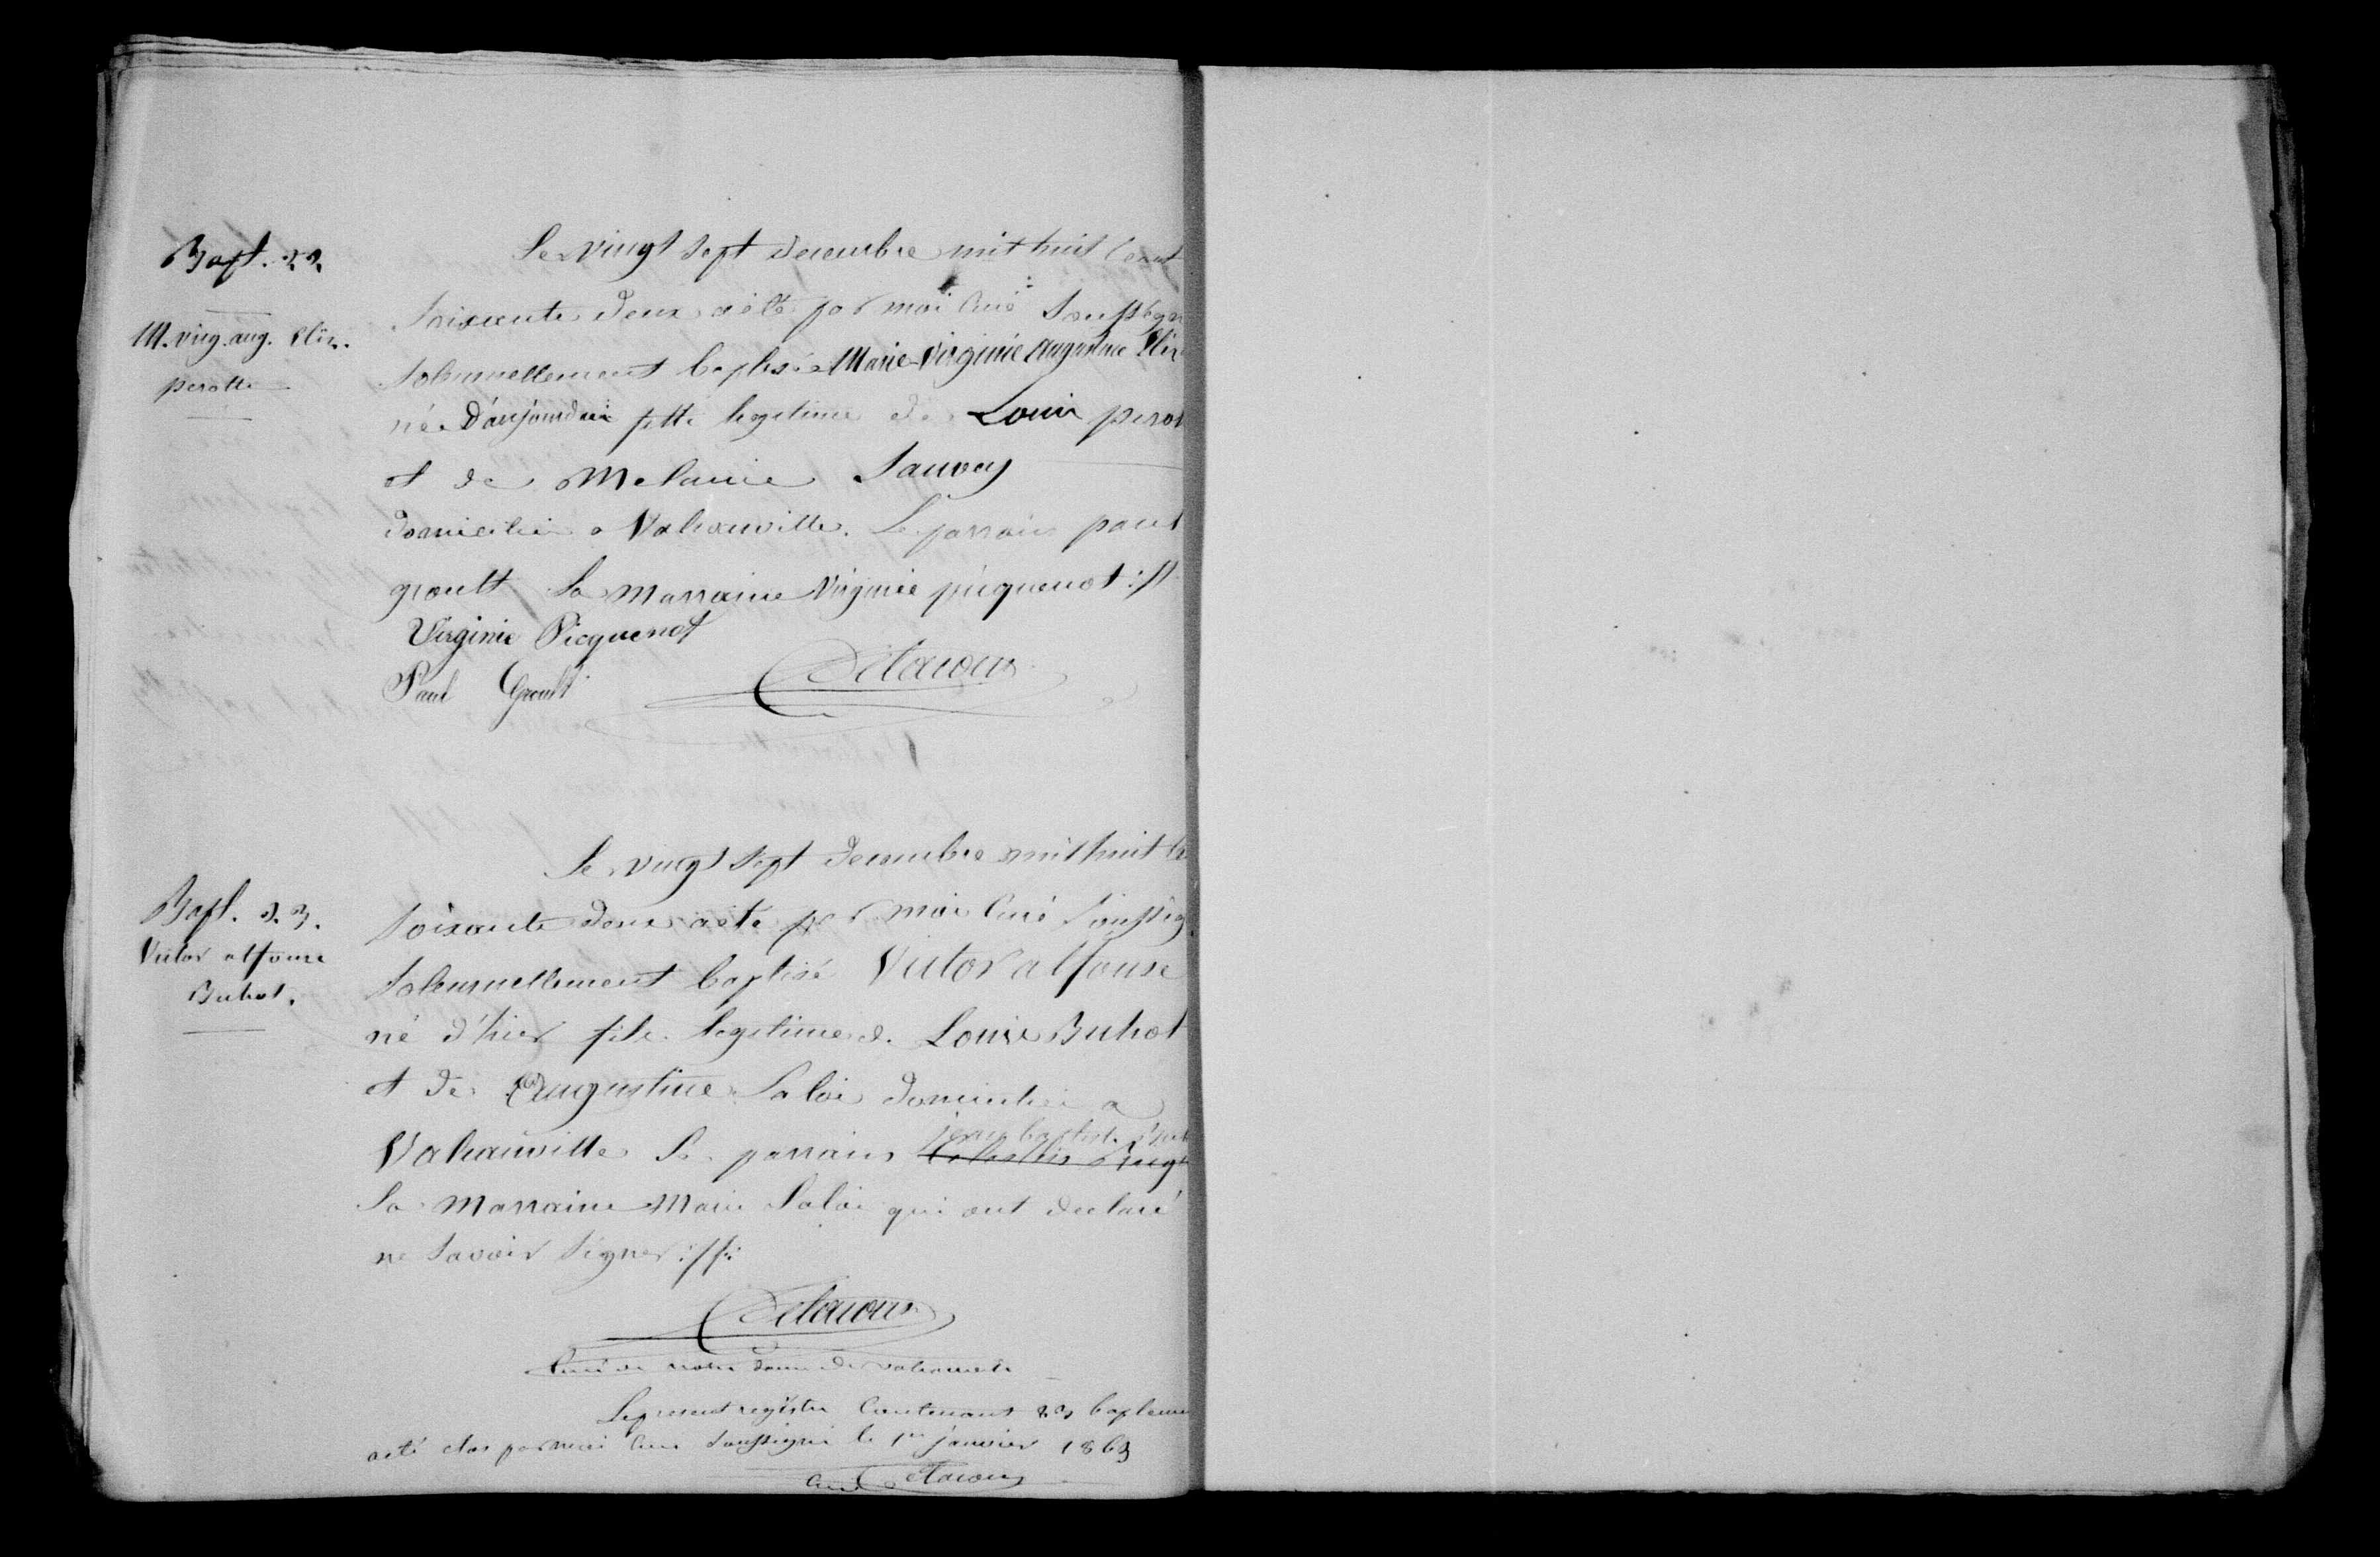 Bapt. 22
M. virg. aug. Eliz.
perotte
Le vingt sept decembre mil huit cent
soixante deux a été par moi curé soussign
solennellement baptisée Marie Virginie Augustine Eliz
née d'aujourdui fille legitime de Louis perot
et de Melanie Sauvey
domicilié a Valcanville. Le parrain paul
groult la marraine Virginie picquenot ://
Virginie Picquenot
Paul Groult
Delacour
Bapt. 23.
Victor alfonse
Buhot.
Le vingt sept decembre mil huit ce
soixante deux a été par moi curé soussig
solennellement baptisé Victor alfonse
né d'hier fils legitime de Louis Buhot
et de Augustine Saloi domicilié a
jean baptiste Buh
Valcanville Le parrain
La marraine Marie Saloi qui ont declaré
ne savoir signer ://:
Delacour
Curé de notre dame de valcanville
Le present registre contenant 23 bapteme
a eté clos par moi curé soussigné le 1er janvier 1863
Delacour